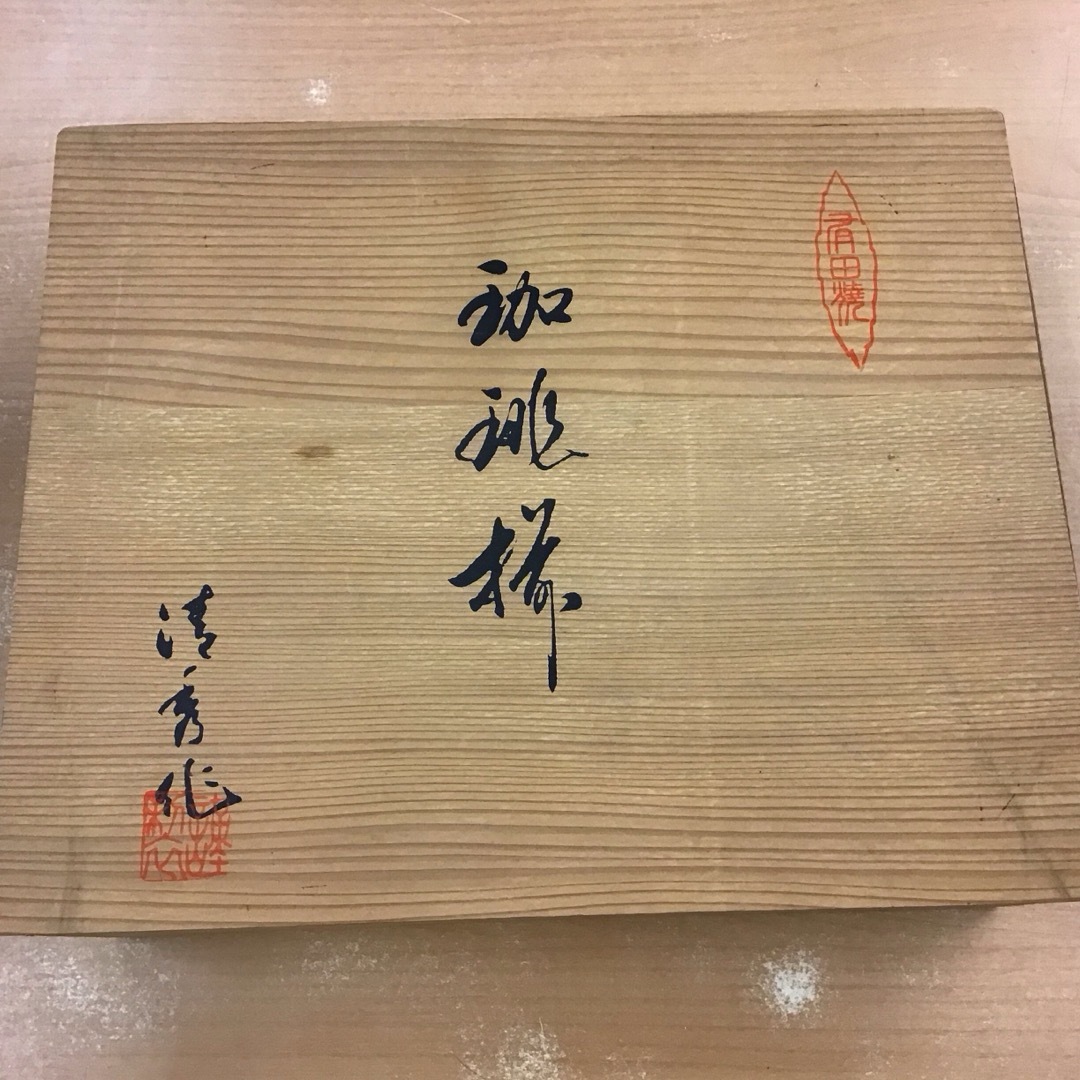 有田焼
珈琲揃
清秀作